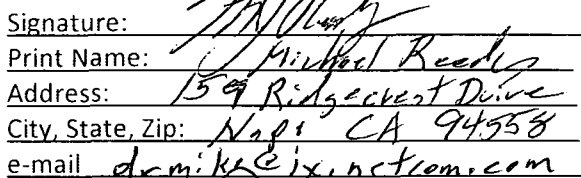 Signature:
Print Name: Michael Reedy
Address: 159 Ridgecrest Drive
City, State, Zip: Napa CA 94558
e-mail drmike@ix.netcom.com